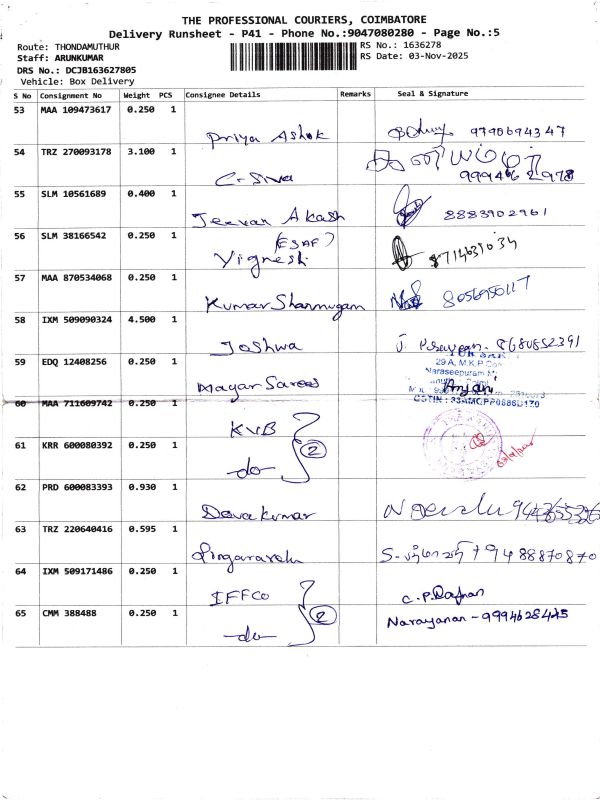 THE PROFESSIONAL COURIERS, COIMBATORE
Delivery Runsheet - P41 - Phone No.:9047080280 - Page No.:5
Route: THONDAMUTHUR
RS No.: 1636278
Staff: ARUNKUMAR
RS Date: 03-Nov-2025
DRS No.: DCJB163627805
Vehicle: Box Delivery
S No Consignment No Weight PCS Consignee Details Remarks Seal & Signature
53 MAA 109473617 0.250 1
Priya Ashok 9790694347
54 TRZ 270093178 3.100 1
C-Siva
55 SLM 10561689 0.400 1
Jeevan Akash 8883902961
56 SLM 38166542 0.250 1
(ESAF)
Vignesh
57 MAA 870534068 0.250 1
Kumar Shanmugam 8056950117
58 IXM 509090324 4.500 1
Joshwa J. 8680852391
59 EDQ 12408256 0.250 1
29 A, M.K.P
Naraseepuram
Mayar Sarees
60 MAA 711609742 0.250 1
KVB
61 KRR 600080392 0.250 1
2
-do-
62 PRD 600083393 0.930 1
Deva kumar
63 TRZ 220640416 0.595 1
Lingaraselu 9488870870
64 IXM 509171486 1
IFFCO C.P.
65 CMM 388488 0.250 1
2
-do- Narayanan - 9994628425